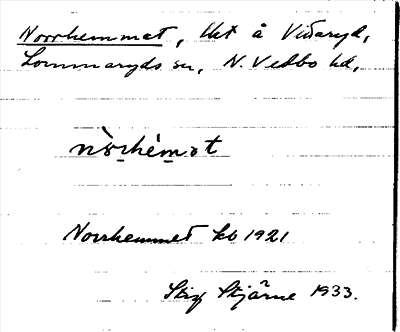 Norrhemmet, lht å Vidaryd,
Lommaryds sn, N. Vedbo hd,
Norrhemmet kb 1921
Stig Stjärne 1933.